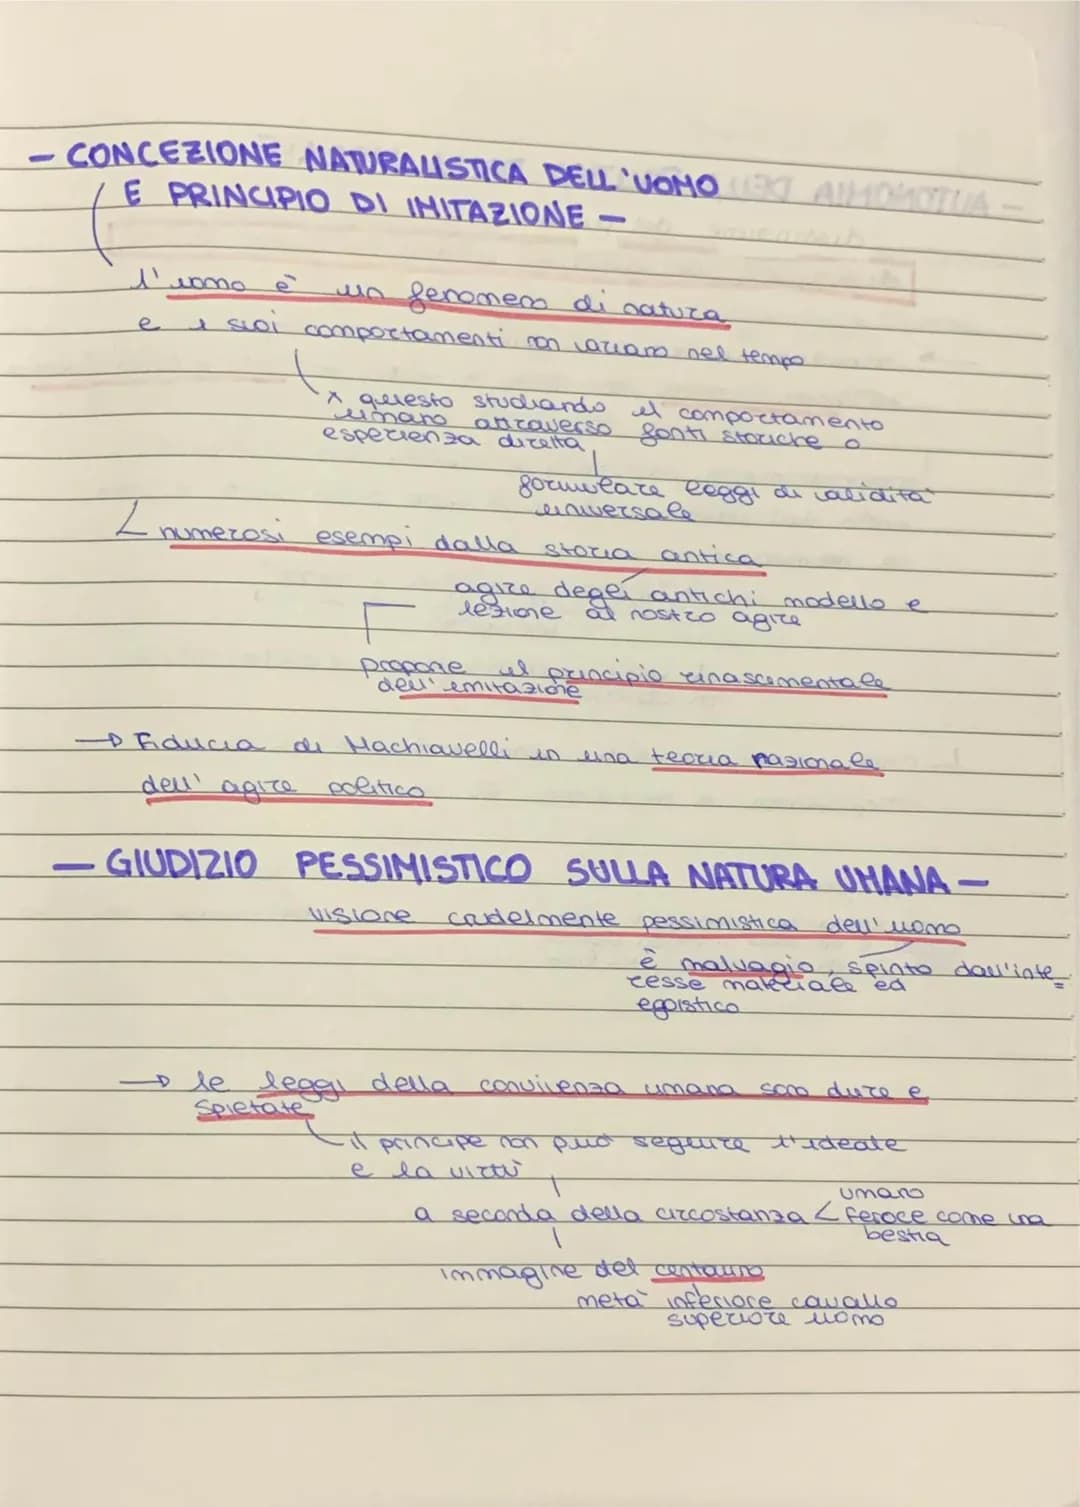 - CONCEZIONE NATURALISTICA DELL'UOMO
E PRINCIPIO DI IMITAZIONE -
l'uomo è un fenomeno di natura
e i suoi comportamenti non variano nel tempo
x questo studiando il comportamento
umano attraverso fonti storiche o
esperienza diretta
formulare leggi di validità
universale
numerosi esempi dalla storia antica
agire degli antichi modello e
lezione al nostro agire
propone il principio rinascimentale
dell'imitazione
→ Fiducia di Machiavelli in una teoria razionale
dell'agire politico
- GIUDIZIO PESSIMISTICO SULLA NATURA UMANA -
visione crudelmente pessimistica dell'uomo
è malvagio, spinto dall'inte
resse materiale ed
egoistico
→ le leggi della convivenza umana sono dure e
spietate
il principe non può seguire l'ideale
e la virtù
umano
a seconda della circostanza < feroce come una
bestia
immagine del centauro
metà inferiore cavallo
superiore uomo